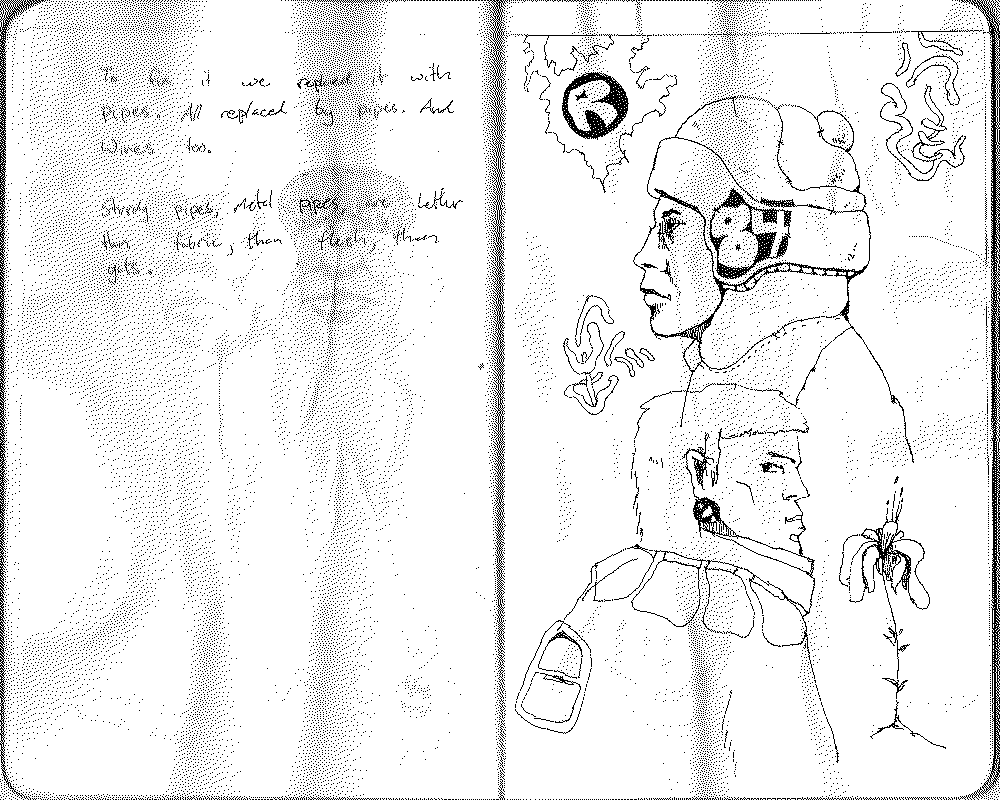 it we replace it with
pipes. All replaced by pipes. And
Wires too.
Sturdy pipes, metal pipes are better
than fabric, than flesh, than
guts.
R